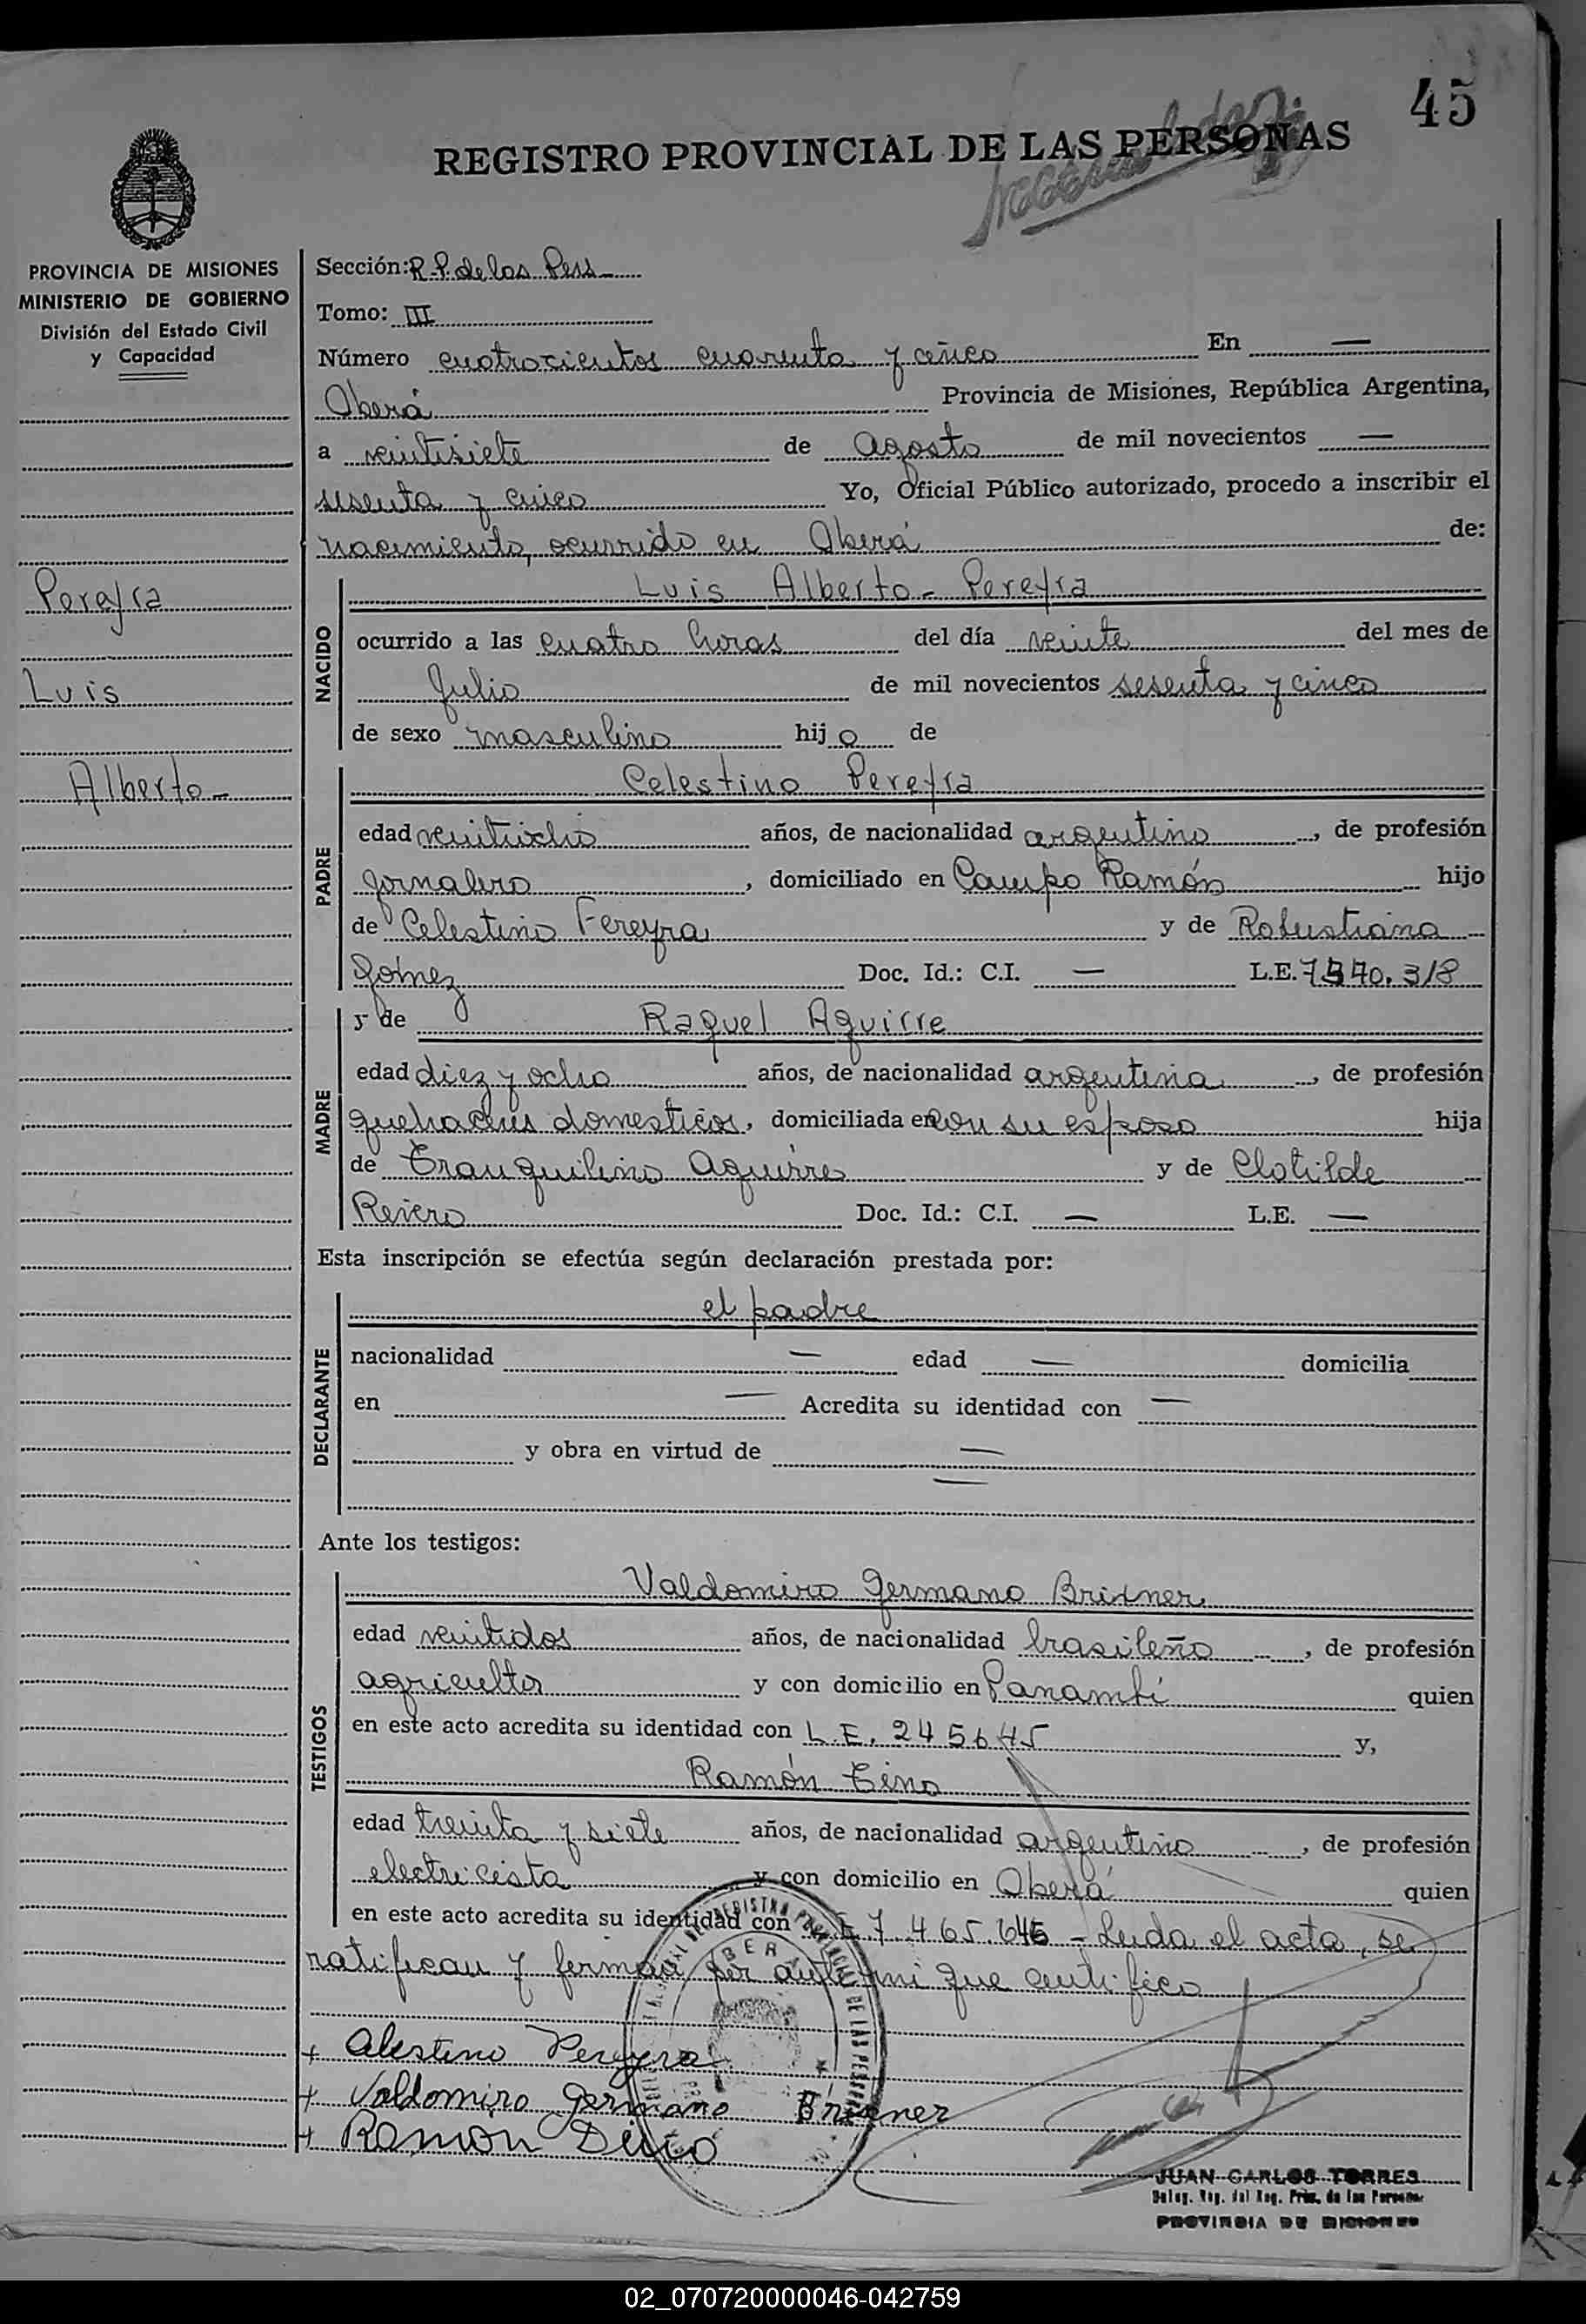 45
REGISTRO PROVINCIAL DE LAS PERSONAS
PROVINCIA DE MISIONES
MINISTERIO DE GOBIERNO
División del Estado Civil
y Capacidad
Pereyra
Luis
Alberto -
Sección: R. P. de las Pers
Tomo: III
Número cuatrocientos cuarenta y cinco En —
Oberá Provincia de Misiones, República Argentina,
a veintisiete de Agosto de mil novecientos —
sesenta y cinco Yo, Oficial Público autorizado, procedo a inscribir el
nacimiento, ocurrido en Oberá de:
NACIDO
Luis Alberto - Pereyra
ocurrido a las cuatro horas del día veinte del mes de
Julio de mil novecientos sesenta y cinco
de sexo masculino hijo de
PADRE
Celestino Pereyra
edad veintiocho años, de nacionalidad argentino, de profesión
jornalero, domiciliado en Campo Ramón hijo
de Celestino Pereyra y de Robustiana
Gómez Doc. Id.: C.I. — L.E. 7540.318
MADRE
y de Raquel Aguirre
edad diez y ocho años, de nacionalidad argentina, de profesión
quehaceres domesticos, domiciliada en con su esposo hija
de Tranquilino Aguirre y de Clotilde
Reviero Doc. Id.: C.I. — L.E. —
Esta inscripción se efectúa según declaración prestada por:
DECLARANTE
el padre
nacionalidad — edad — domicilia
en — Acredita su identidad con —
y obra en virtud de —
—
Ante los testigos:
TESTIGOS
Valdomiro Germano Brixner
edad veintidos años, de nacionalidad brasileño, de profesión
agricultor y con domicilio en Panambí quien
en este acto acredita su identidad con L.E. 245645 y,
Ramón
edad treinta y siete años, de nacionalidad argentino, de profesión
electricista y con domicilio en Oberá quien
en este acto acredita su identidad con 7.465.646 - Leida el acta, se
ratifican y firman por ante mi que certifico
+ Celestino Pereyra
+ Valdomiro Germano Brixner
+ Ramon
JUAN CARLOS TORRES
PROVINCIA DE MISIONES
02_070720000046-042759